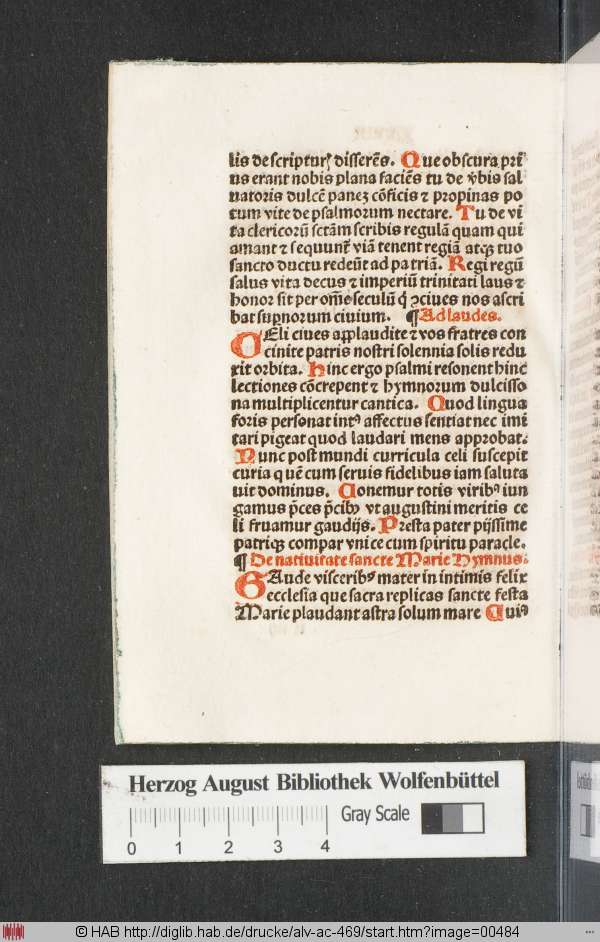 lis de scripturꝭ disserēs. Que obscura pri
us erant nobis plana faciēs tu de v̄bis sal
uatoris dulcē paneʒ cōficis ⁊ propinas po
tum vite de psalmorum nectare. Tu de vi
ta clericorū sctām scribis regulā quam qui
amant ⁊ sequunt᷑ viā tenent regiā atqꝫ tuo
sancto ductu redeūt ad patriā. Regi regū
salus vita decus ⁊ imperiū trinitati laus ⁊
honor sit per om̄e seculū q̇ ꝯciues nos ascri
bat sup̄norum ciuium. ¶ Ad laudes.
CEli ciues applaudite ⁊ vos fratres con
cinite patris nostri solennia solis redu
xit orbita. Hinc ergo psalmi resonent hinc
lectiones cōcrepent ⁊ hymnorum dulcisso
na multiplicentur cantica. Quod lingua
foris personat intꝰ affectus sentiat nec imi
tari pigeat quod laudari mens approbat.
Nunc post mundi curricula celi suscepit
curia quē cum seruis fidelibus iam saluta
uit dominus. Conemur totis viribꝰ iun
gamus p̄ces p̄cibꝰ vt augustini meritis ce
li fruamur gaudijs. Presta pater pijssime
patriqꝫ compar vnice cum spiritu paracle.
¶ De natiuitate sancte Marie Hymnus.
GAude visceribꝰ mater in intimis felix
ecclesia que sacra replicas sancte festa
Marie plaudant astra solum mare Cuiꝰ
Herzog August Bibliothek Wolfenbüttel
Gray Scale
0 1 2 3 4
© HAB http://diglib.hab.de/drucke/alv-ac-469/start.htm?image=00484